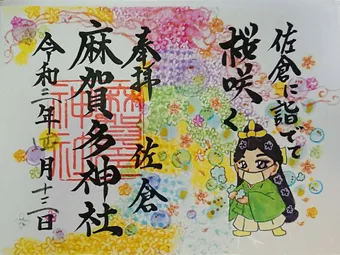 佐倉に詣でて
桜咲く
奉拝 佐倉
麻賀多神社
令和三年 月十三日